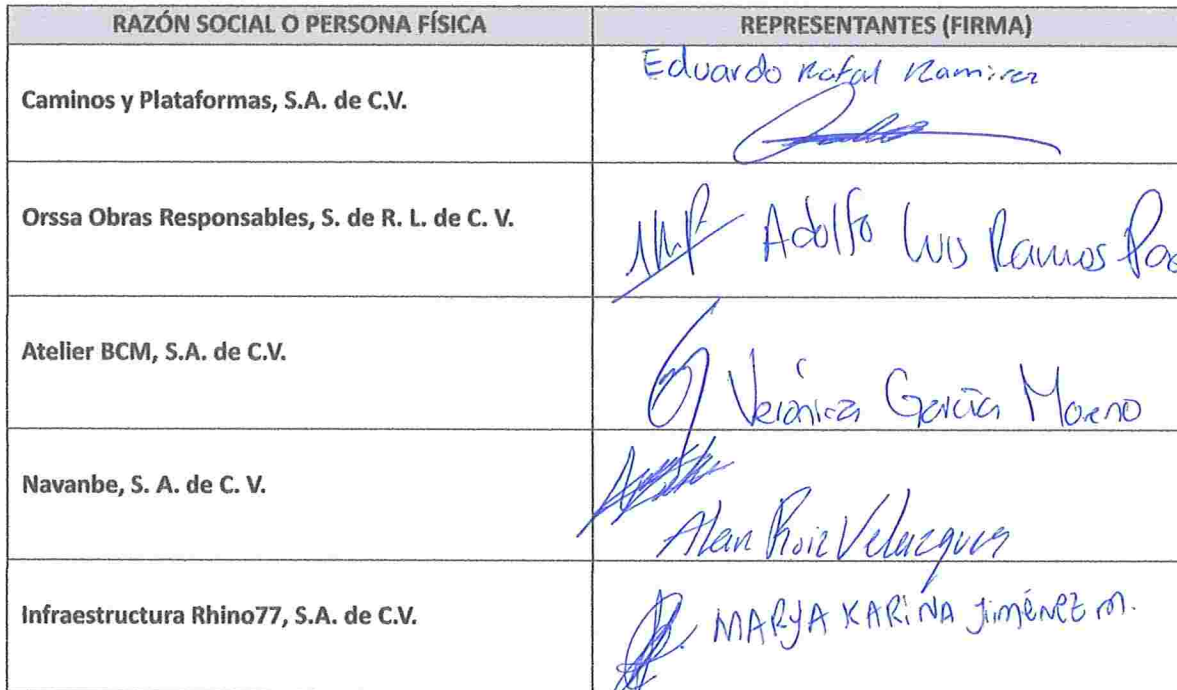 RAZÓN SOCIAL O PERSONA FÍSICA REPRESENTANTES (FIRMA)
Caminos y Plataformas, S.A. de C.V. Eduardo Rafal Ramirez
Orssa Obras Responsables, S. de R. L. de C. V. Adolfo Luis Ramos
Atelier BCM, S.A. de C.V. Verónica García Moreno
Navanbe, S. A. de C. V. Alan Ruiz Velazquez
Infraestructura Rhino77, S.A. de C.V. MARYA KARiNA Jiménez m.